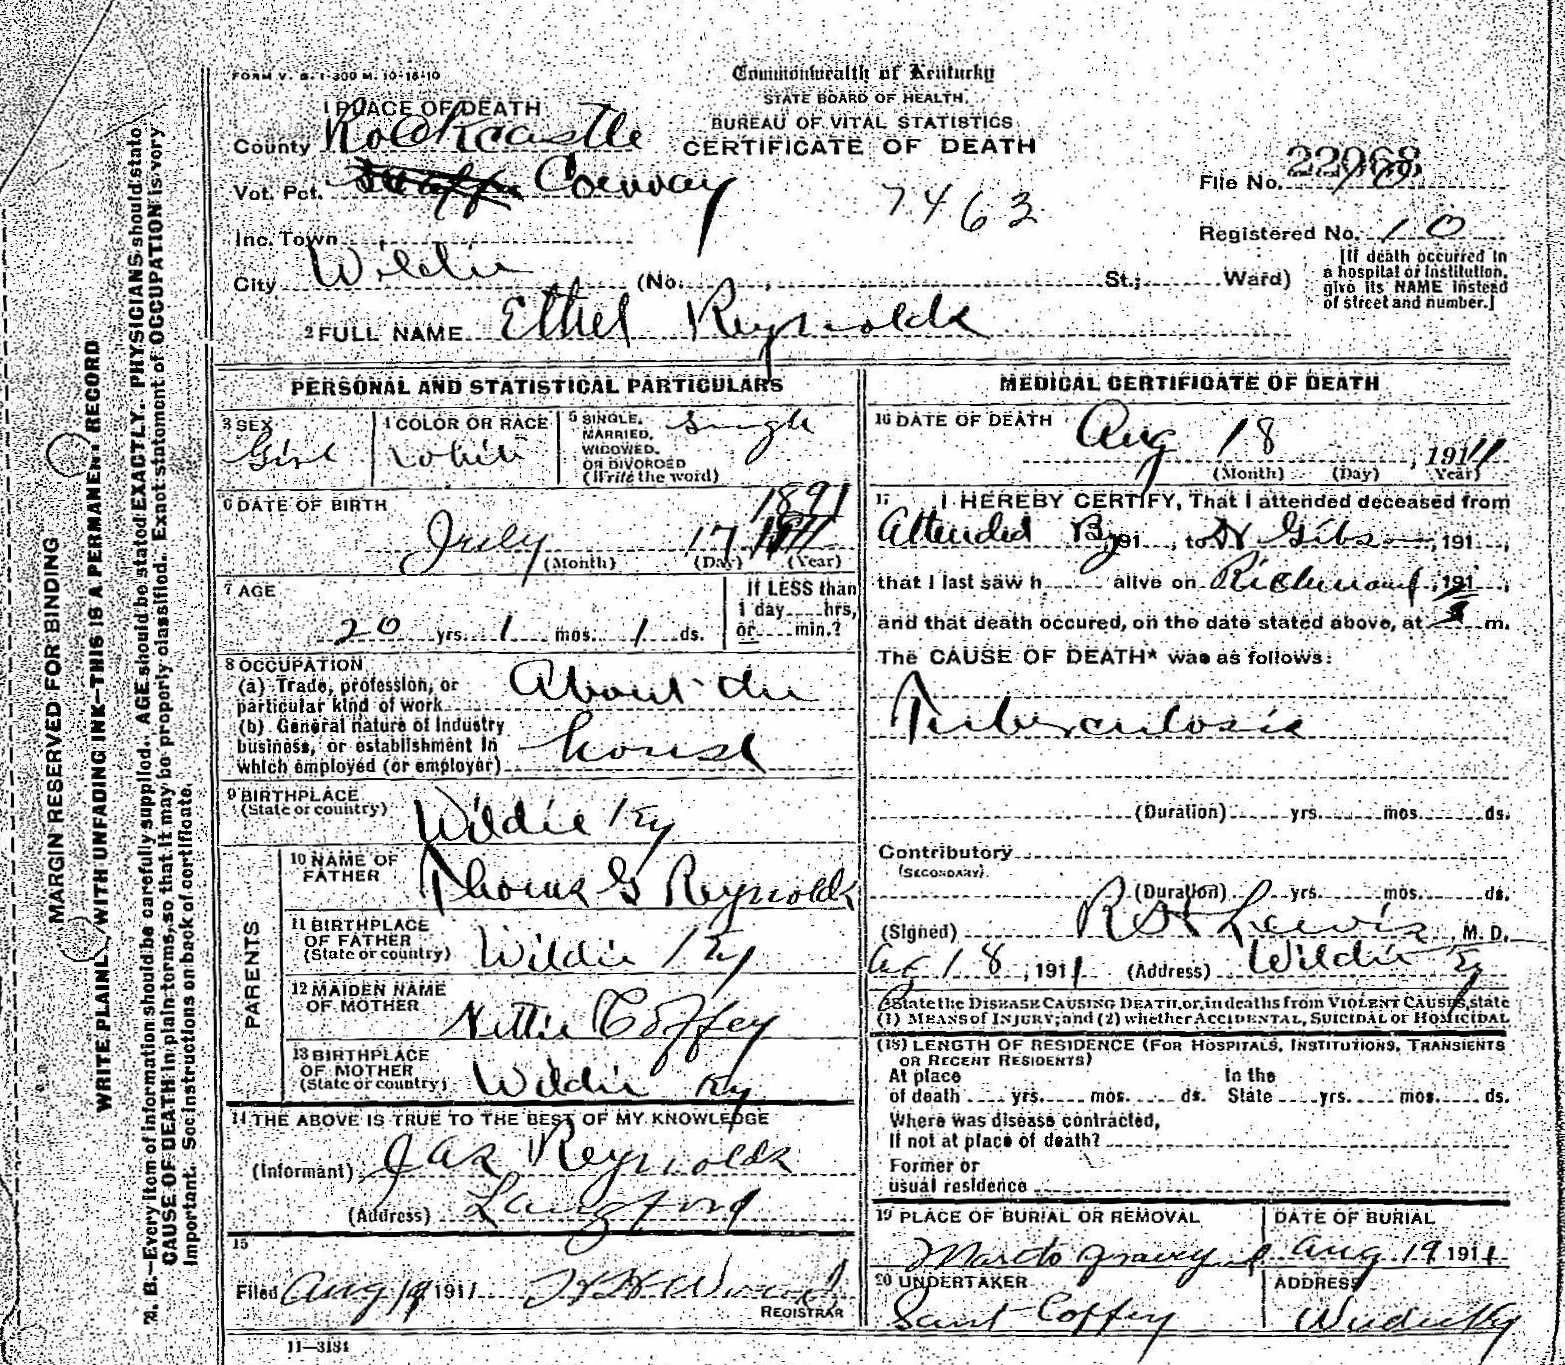 FORM V. S. 1-300 M. 10-18-10
Commonwealth of Kentucky
STATE BOARD OF HEALTH.
BUREAU OF VITAL STATISTICS
CERTIFICATE OF DEATH
1 PLACE OF DEATH
County Rockcastle
Vot. Pct. Conway
7463
File No. 22068
Inc. Town
Registered No. 10
City Wildie (No. St.; Ward)
[If death occurred in a hospital or institution, give its NAME instead of street and number.]
2 FULL NAME Ethel Reynolds
PERSONAL AND STATISTICAL PARTICULARS
3 SEX Girl
4 COLOR OR RACE White
5 SINGLE, MARRIED, WIDOWED, OR DIVORCED (Write the word) Single
6 DATE OF BIRTH
July 17 1891
(Month) (Day) (Year)
7 AGE
20 yrs. 1 mos. 1 ds.
If LESS than 1 day hrs, or min.?
8 OCCUPATION
(a) Trade, profession, or particular kind of work About the
(b) General nature of Industry business, or establishment in which employed (or employer) house
9 BIRTHPLACE (State or country) Wildie Ky
PARENTS
10 NAME OF FATHER Thomas G Reynolds
11 BIRTHPLACE OF FATHER (State or country) Wildie Ky
12 MAIDEN NAME OF MOTHER Nettie Coffey
13 BIRTHPLACE OF MOTHER (State or country) Wildie Ky
14 THE ABOVE IS TRUE TO THE BEST OF MY KNOWLEDGE
(Informant) Jas Reynolds
(Address) Langford
15
Filed Aug 19 1911
REGISTRAR
11—3184
MEDICAL CERTIFICATE OF DEATH
16 DATE OF DEATH Aug 18, 1911
(Month) (Day) (Year)
17 I HEREBY CERTIFY, That I attended deceased from
Attended By, 191, to Gibson, 191,
that I last saw h alive on Richmond, 191,
and that death occured, on the date stated above, at m.
The CAUSE OF DEATH* was as follows:
Tuberculosis
(Duration) yrs. mos. ds.
Contributory
(SECONDARY)
(Duration) yrs. mos. ds.
(Signed) Lewis, M. D.
18, 1911 (Address) Wildie Ky
*State the DISEASE CAUSING DEATH, or, in deaths from VIOLENT CAUSES, state
(1) MEANS of INJURY; and (2) whether ACCIDENTAL, SUICIDAL or HOMICIDAL
(18) LENGTH OF RESIDENCE (FOR HOSPITALS, INSTITUTIONS, TRANSIENTS
OR RECENT RESIDENTS)
At place of death yrs. mos. ds. In the State yrs. mos. ds.
Where was disease contracted,
If not at place of death?
Former or
usual residence
19 PLACE OF BURIAL OR REMOVAL
DATE OF BURIAL
Aug 19 1911
20 UNDERTAKER
ADDRESS
Coffey
MARGIN RESERVED FOR BINDING
WRITE PLAINLY, WITH UNFADING INK—THIS IS A PERMANENT RECORD
N. B.—Every item of information should be carefully supplied. AGE should be stated EXACTLY. PHYSICIANS should state
CAUSE OF DEATH in plain terms, so that it may be properly classified. Exact statement of OCCUPATION is very
important. See instructions on back of certificate.